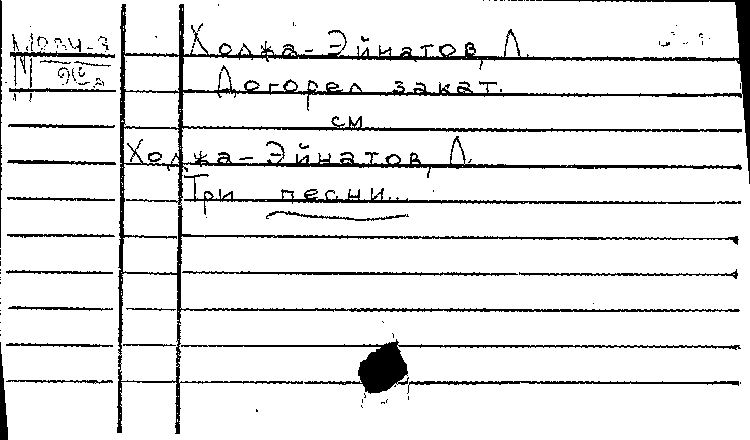 Ходжа-Эйнатов, Л.
Догорел закат.
см
Ходжа-Эйнатов, Л.
Три песни...